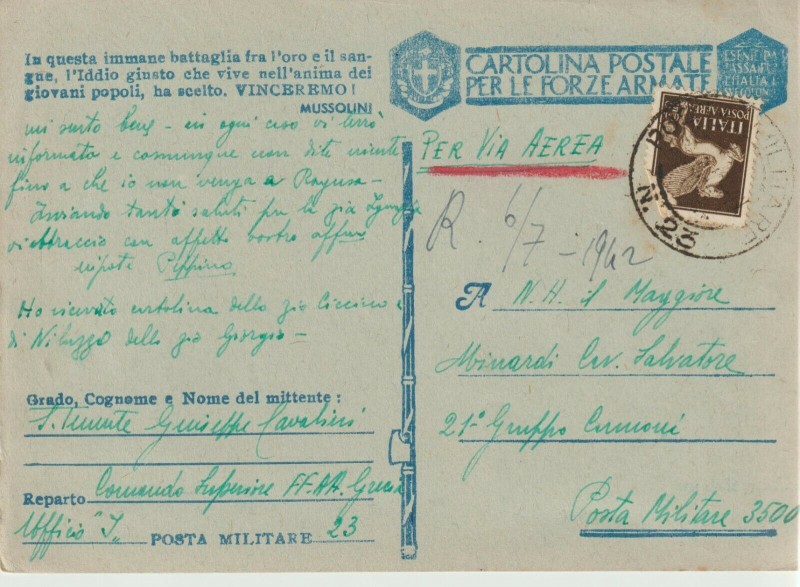 In questa immane battaglia fra l'oro e il san-
gue, l'Iddio giusto che vive nell'anima dei
giovani popoli, ha scelto. VINCEREMO!
MUSSOLINI
mi sento bene - in ogni caso vi terrò
informato e comunque non dite niente
fino a che io non venga a Ragusa -
Inviando tanti saluti per la zia
vi abbraccio con affetto vostro affmo
nipote Peppino
Ho ricevuto cartolina dello zio Ciccino e
di dello zio Giorgio -
Grado, Cognome e Nome del mittente:
S. Tenente Giuseppe Cavalieri
Reparto Comando Superiore FF.AA. Grecia
Ufficio "I" POSTA MILITARE 23
CARTOLINA POSTALE
PER LE FORZE ARMATE
ITALIA
POSTA AEREA
N. 23
PER VIA AEREA
R. 6/7 - 1942
A N. H. il Maggiore
Minardi Cav. Salvatore
21° Gruppo Cannoni
Posta Militare 3500